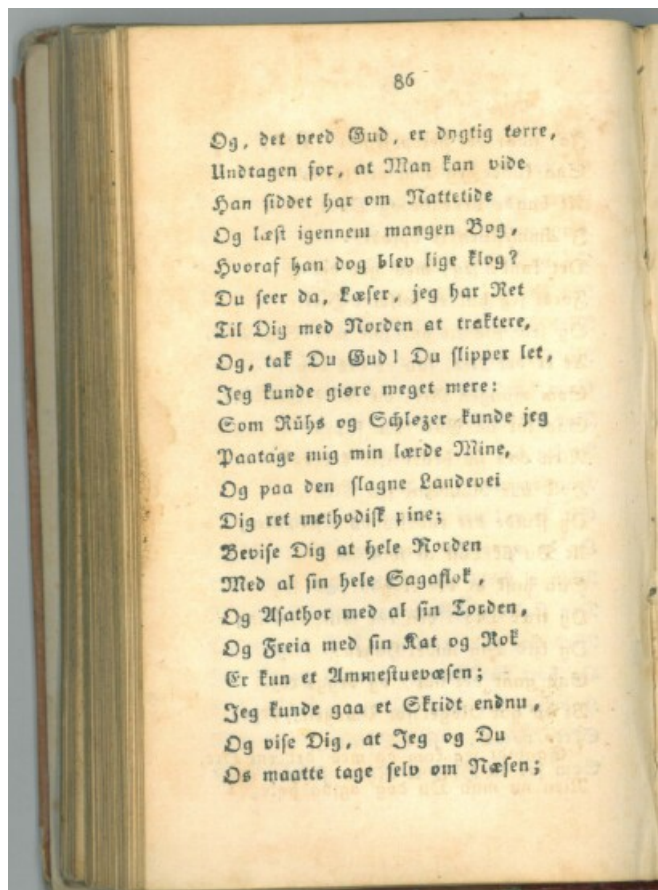 86
Og, det veed Gud, er dygtig tørre,
Undtagen for, at Man kan vide
Han siddet har om Nattetide
Og læst igennem mangen Bog,
Hvoraf han dog blev lige klog?
Du seer da, Læser, jeg har Ret
Til Dig med Norden at traktere,
Og, tak Du Gud! Du slipper let,
Jeg kunde giøre meget mere:
Som Rühs og Schløzer kunde jeg
Paatage mig min lærde Mine,
Og paa den slagne Landevei
Dig ret methodisk pine;
Bevise Dig at hele Norden
Med al sin hele Sagaflok,
Og Asathor med al sin Torden,
Og Freia med sin Kat og Rok
Er kun et Ammestuevæsen;
Jeg kunde gaa et Skridt endnu,
Og vise Dig, at Jeg og Du
Os maatte tage selv om Næsen;